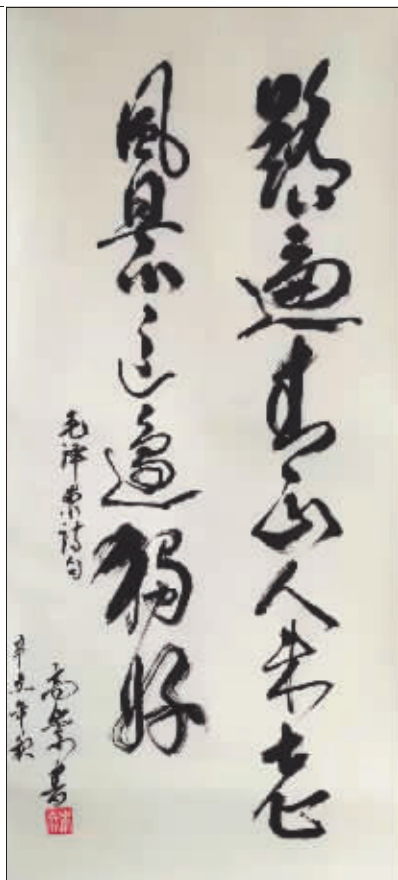 踏遍青山人未老
風景這邊獨好
毛泽東詩句
辛丑年秋
高書